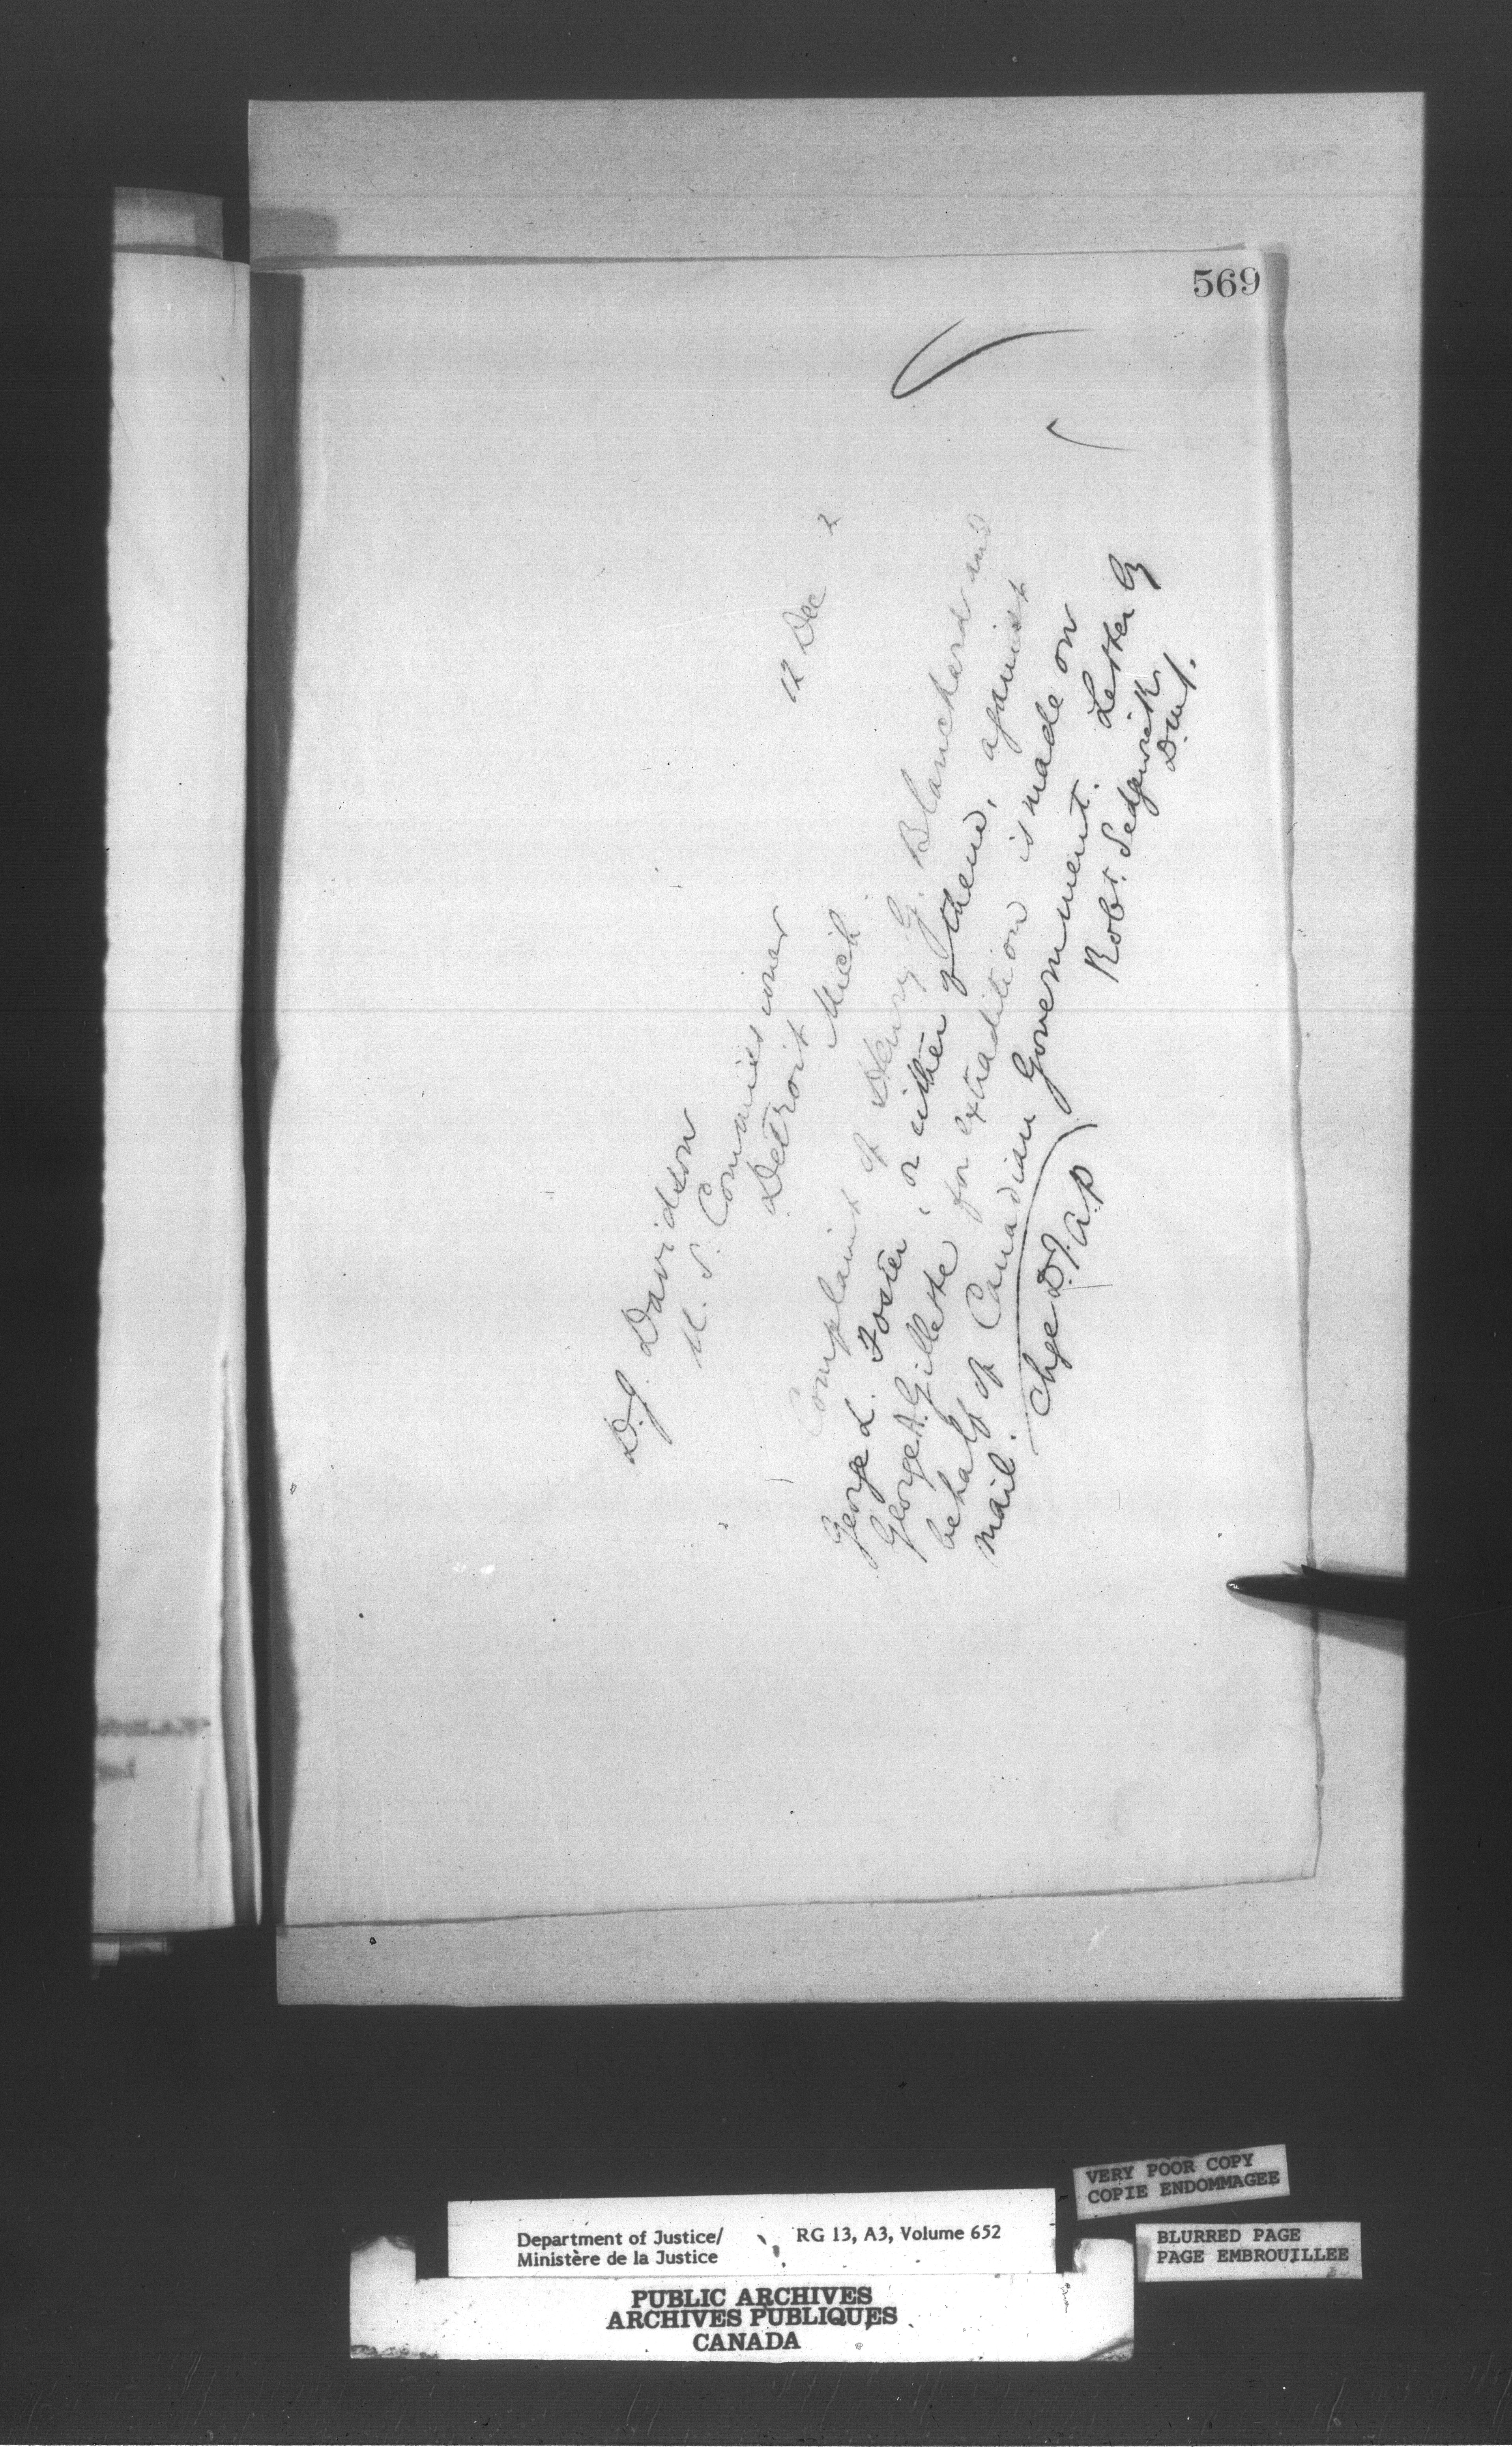 569
12 Dec 2
D. J. Davidson
U. S. Commissioner
Detroit Mich
Complaint of Henry G. Blanchard and
George L. Foster, or either of them, against
George A. Gillette for extradition is made on
behalf of Canadian Government. Letter by
mail.
Robt. Sedgewick
D.M.J.
Chge D.J. a.p
VERY POOR COPY
COPIE ENDOMMAGEE
Department of Justice/
Ministère de la Justice
RG 13, A3, Volume 652
BLURRED PAGE
PAGE EMBROUILLEE
PUBLIC ARCHIVES
ARCHIVES PUBLIQUES
CANADA